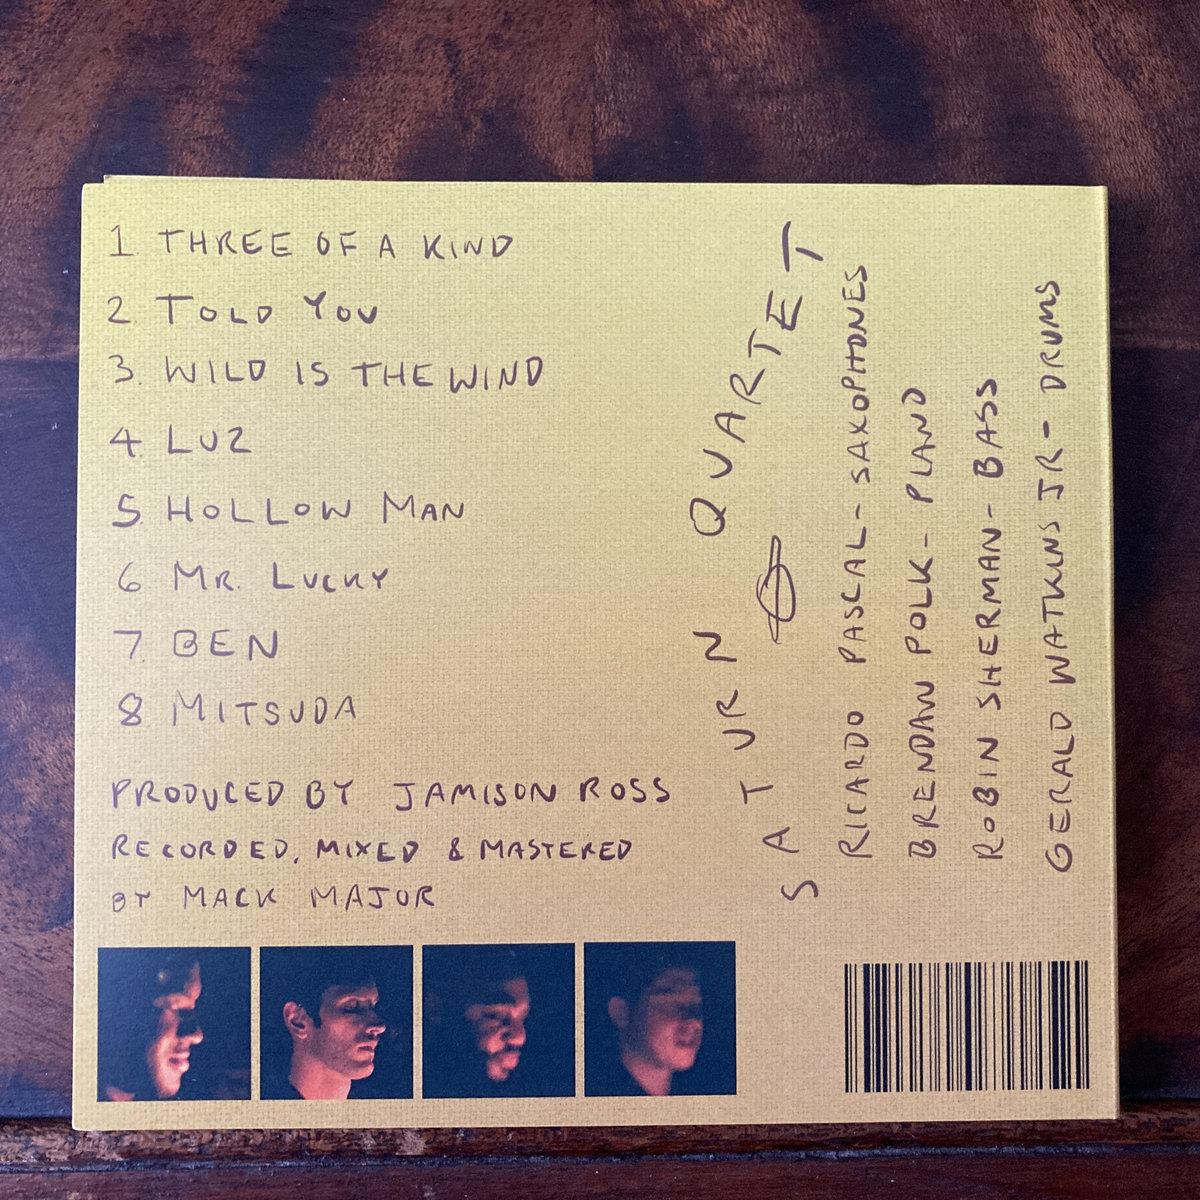 1 THREE OF A KIND
2. TOLD YOU
3. WILD IS THE WIND
4 LUZ
5. HOLLOW MAN
6 MR. LUCKY
7 BEN
8 MITSUDA
PRODUCED BY JAMISON ROSS
RECORDED, MIXED & MASTERED
BY MACK MAJOR
SATURN QUARTET
RICARDO PASCAL - SAXOPHONES
BRENDAN POLK - PIANO
ROBIN SHERMAN - BASS
GERALD WATKINS JR - DRUMS